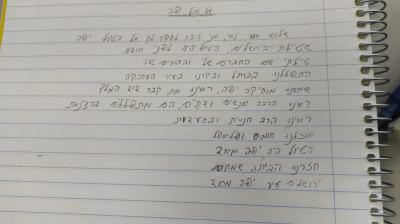 טיול יפה
שלום שמי , אני רוצה לספר לך על הטיול יפה
שטיילתי בירושלים, הטיול היה לפני חודש.
טיילתי עם החברים שלי וההורים שלי
התפללנו בכותל ובקרנו בעיר העתיקה
שמענו מוסיקה יפה, ראינו את קבר דוד המלך
ראינו הרבה אנשים ודתיים, הם מתפללים ברצינות
ראינו הרבה חנויות ובמסעדות
אוכלנו חומוס ופלאפל
הטיול היה יפה מאוד
חזרנו הביתה שמחים
ירושלים עיר יפה מאוד